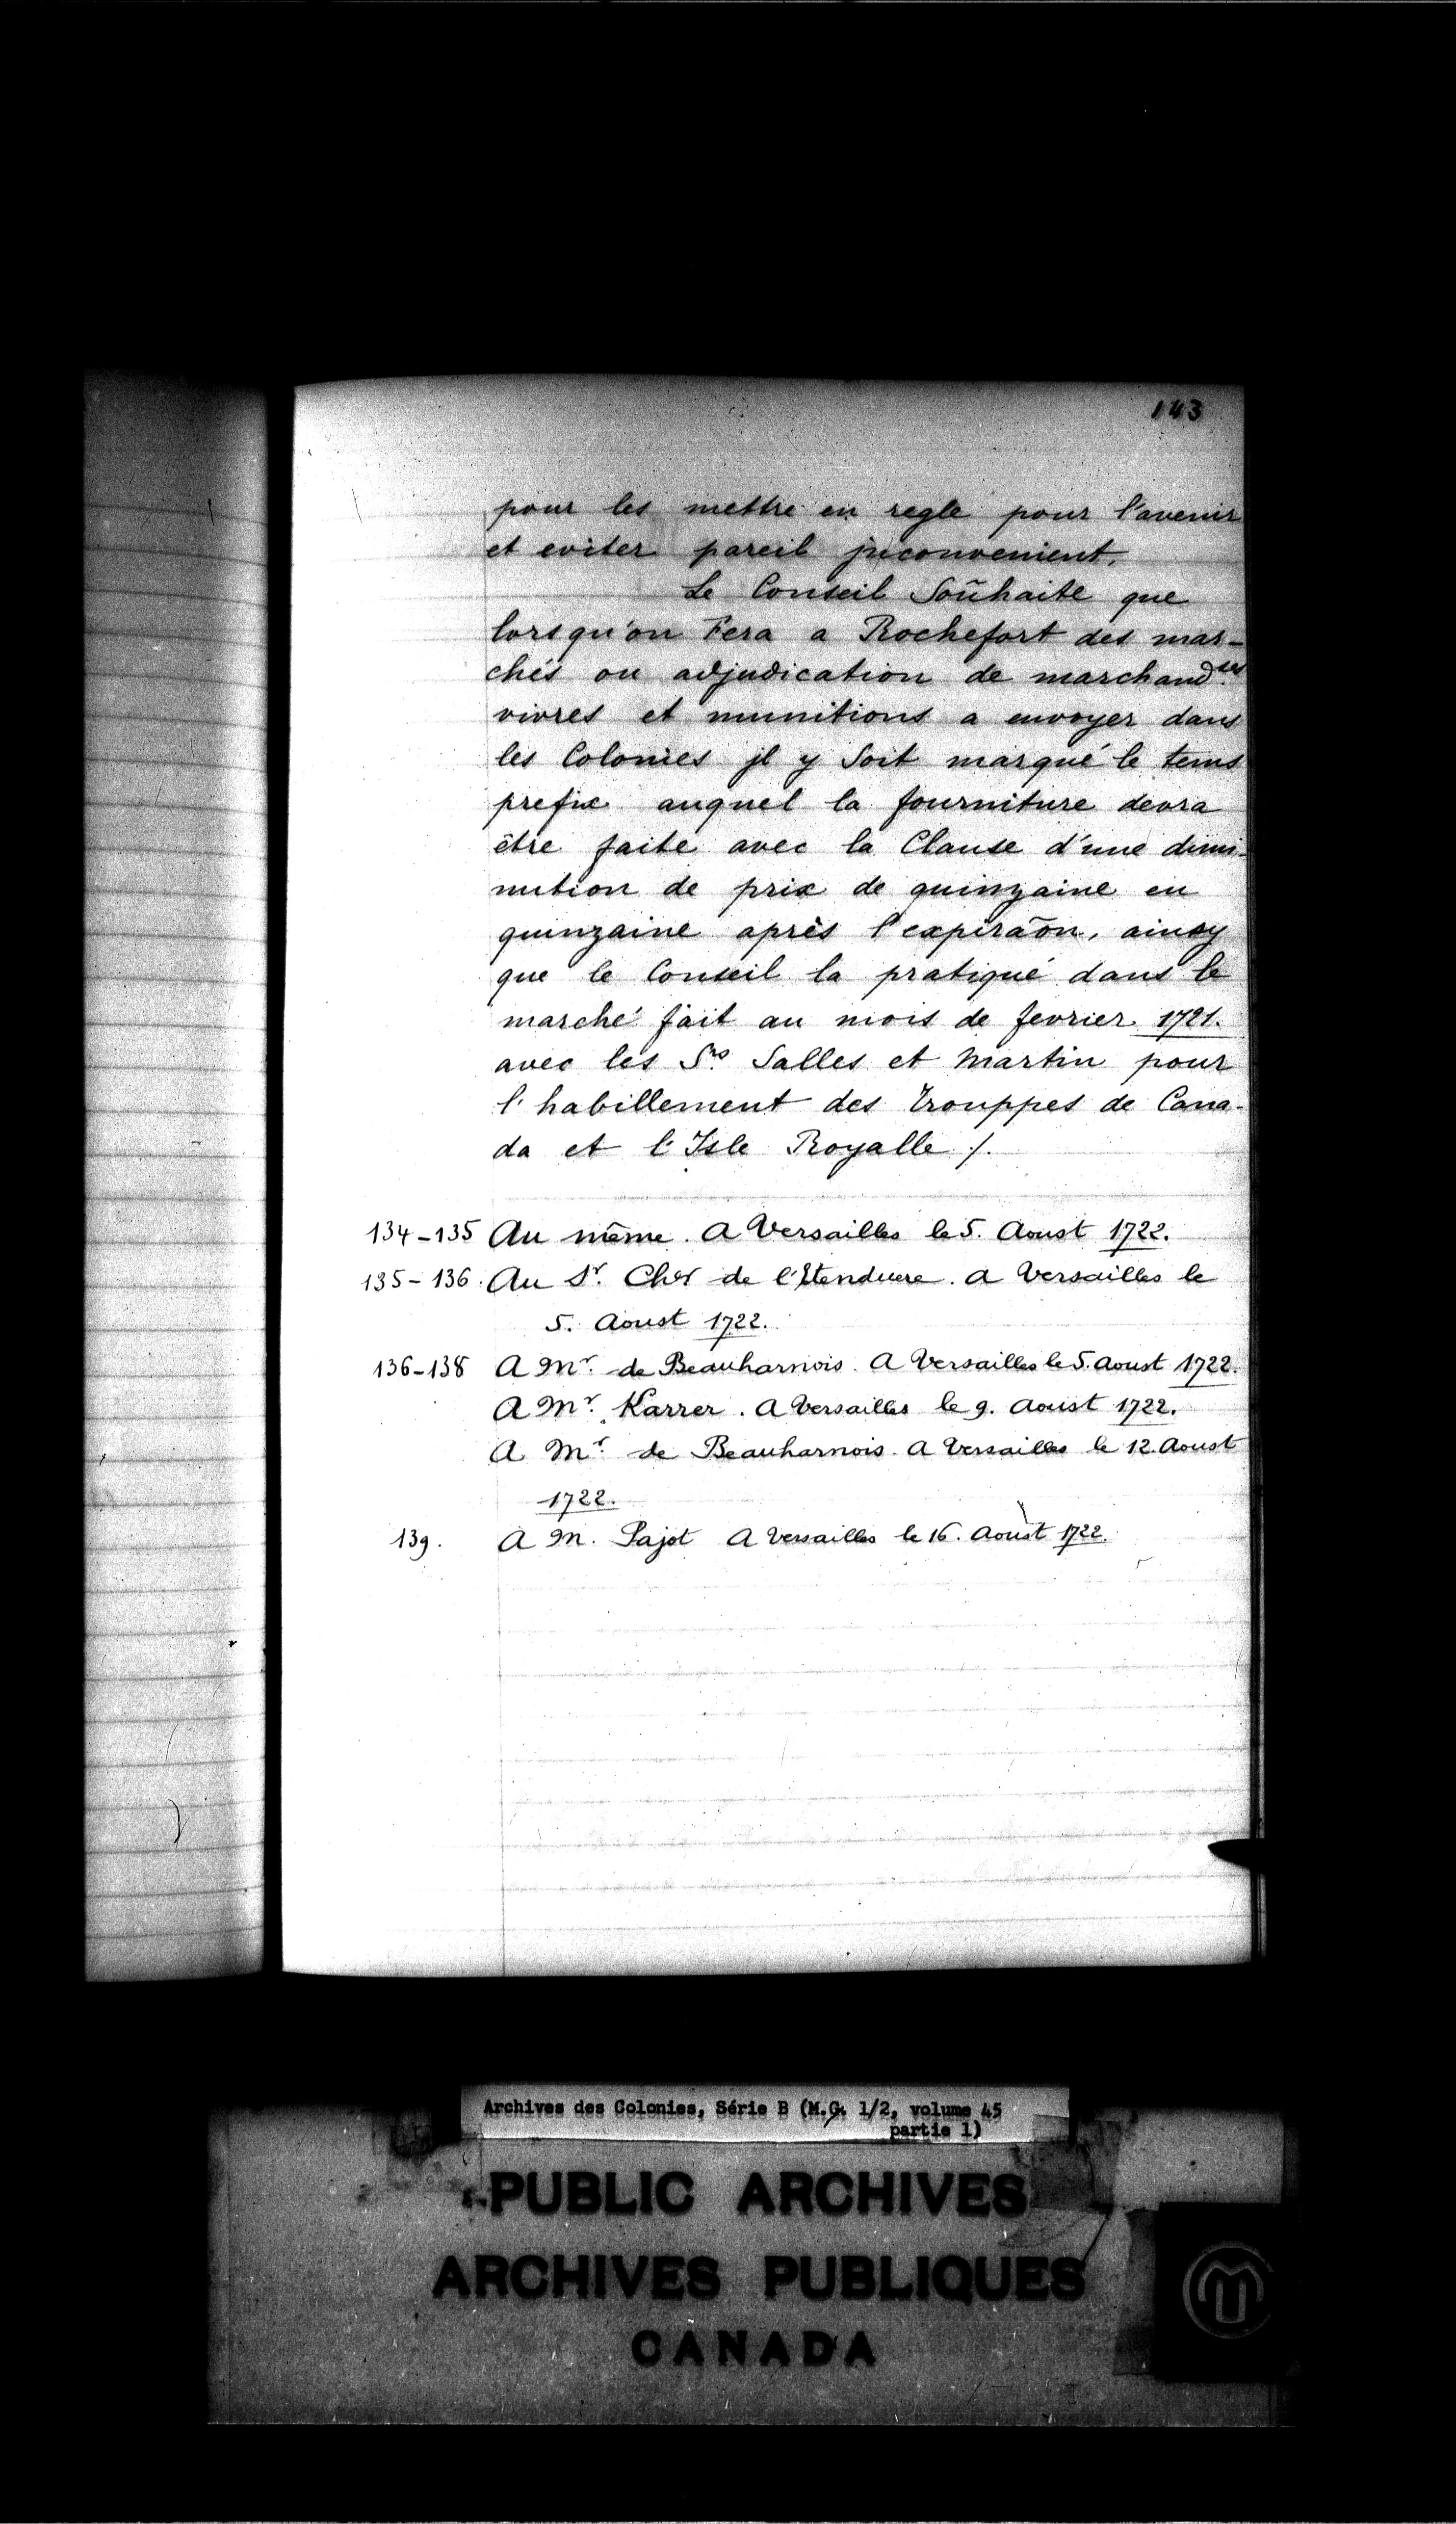 143
pour les mettre en regle pour l'avenir
et eviter pareil jnconvenient.
Le Conseil Soũhaite que
lorsqu'on Fera a Rochefort des mar-
chés ou adjudication de marchand.ses
vivres et munitions a envoyer dans
les Colonies jl y Soit marqué le tems
prefix auquel la fourniture devra
être faite avec la Clause d'une dimi-
nution de prix de quinzaine en
quinzaine après l'expirãon, ainsy
que le Conseil la pratiqué dans le
marché fait au mois de fevrier 1721.
avec les Srs Salles et Martin pour
l'habillement des Trouppes de Cana-
da et l'Isle Royalle /.
134-135 Au même. A Versailles le 5. Aoust 1722.
135-136. Au Sr. Cher de l'Etenduere. A Versailles le
5. Aoust 1722.
136-138 A Mr. de Beauharnois. A Versailles le 5. Aoust 1722.
A Mr. Karrer. A Versailles le 9. Aoust 1722.
A Mr. de Beauharnois. A Versailles le 12 Aoust
1722.
139. A M. Pajot A Versailles le 16. Aoust 1722.
Archives des Colonies, Série B (M.G. 1/2, volume 45
partie 1)
PUBLIC ARCHIVES
ARCHIVES PUBLIQUES
CANADA